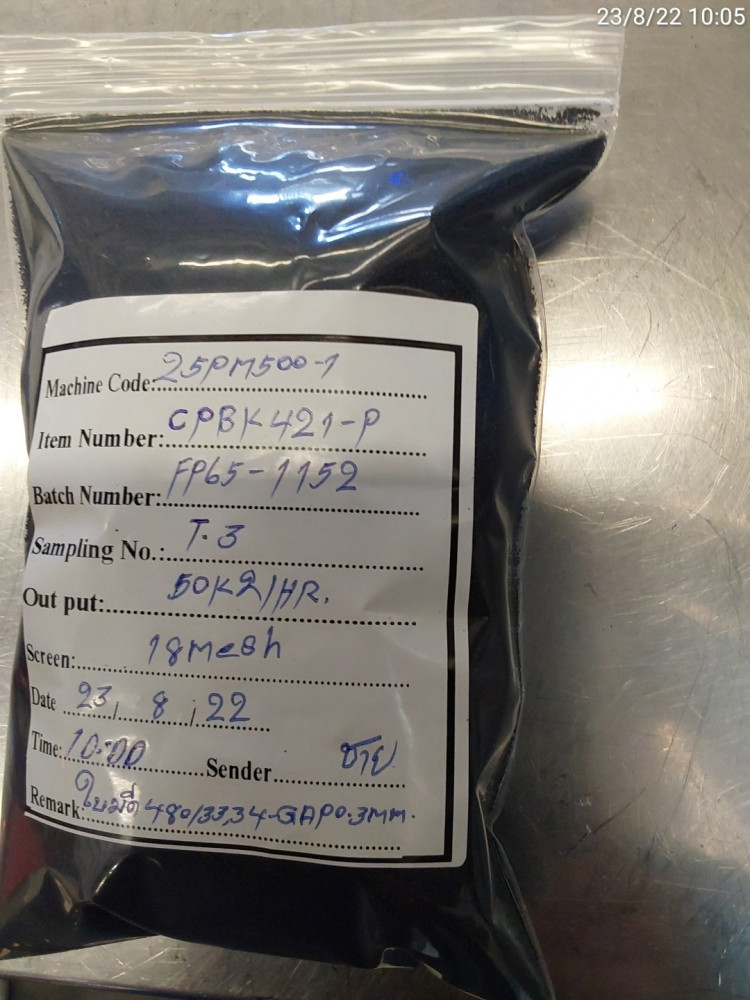 23/8/22 10:05
Machine Code: 25PM500-1
Item Number: CPBK421-P
Batch Number: FP65-1152
Sampling No.: T.3
Out put: 50Kg/HR.
Screen: 18mesh
Date 23 / 8 / 22
Time: 10:00 Sender ชาย
Remark: ใบมีด 480/33,34-GAP0.3mm.